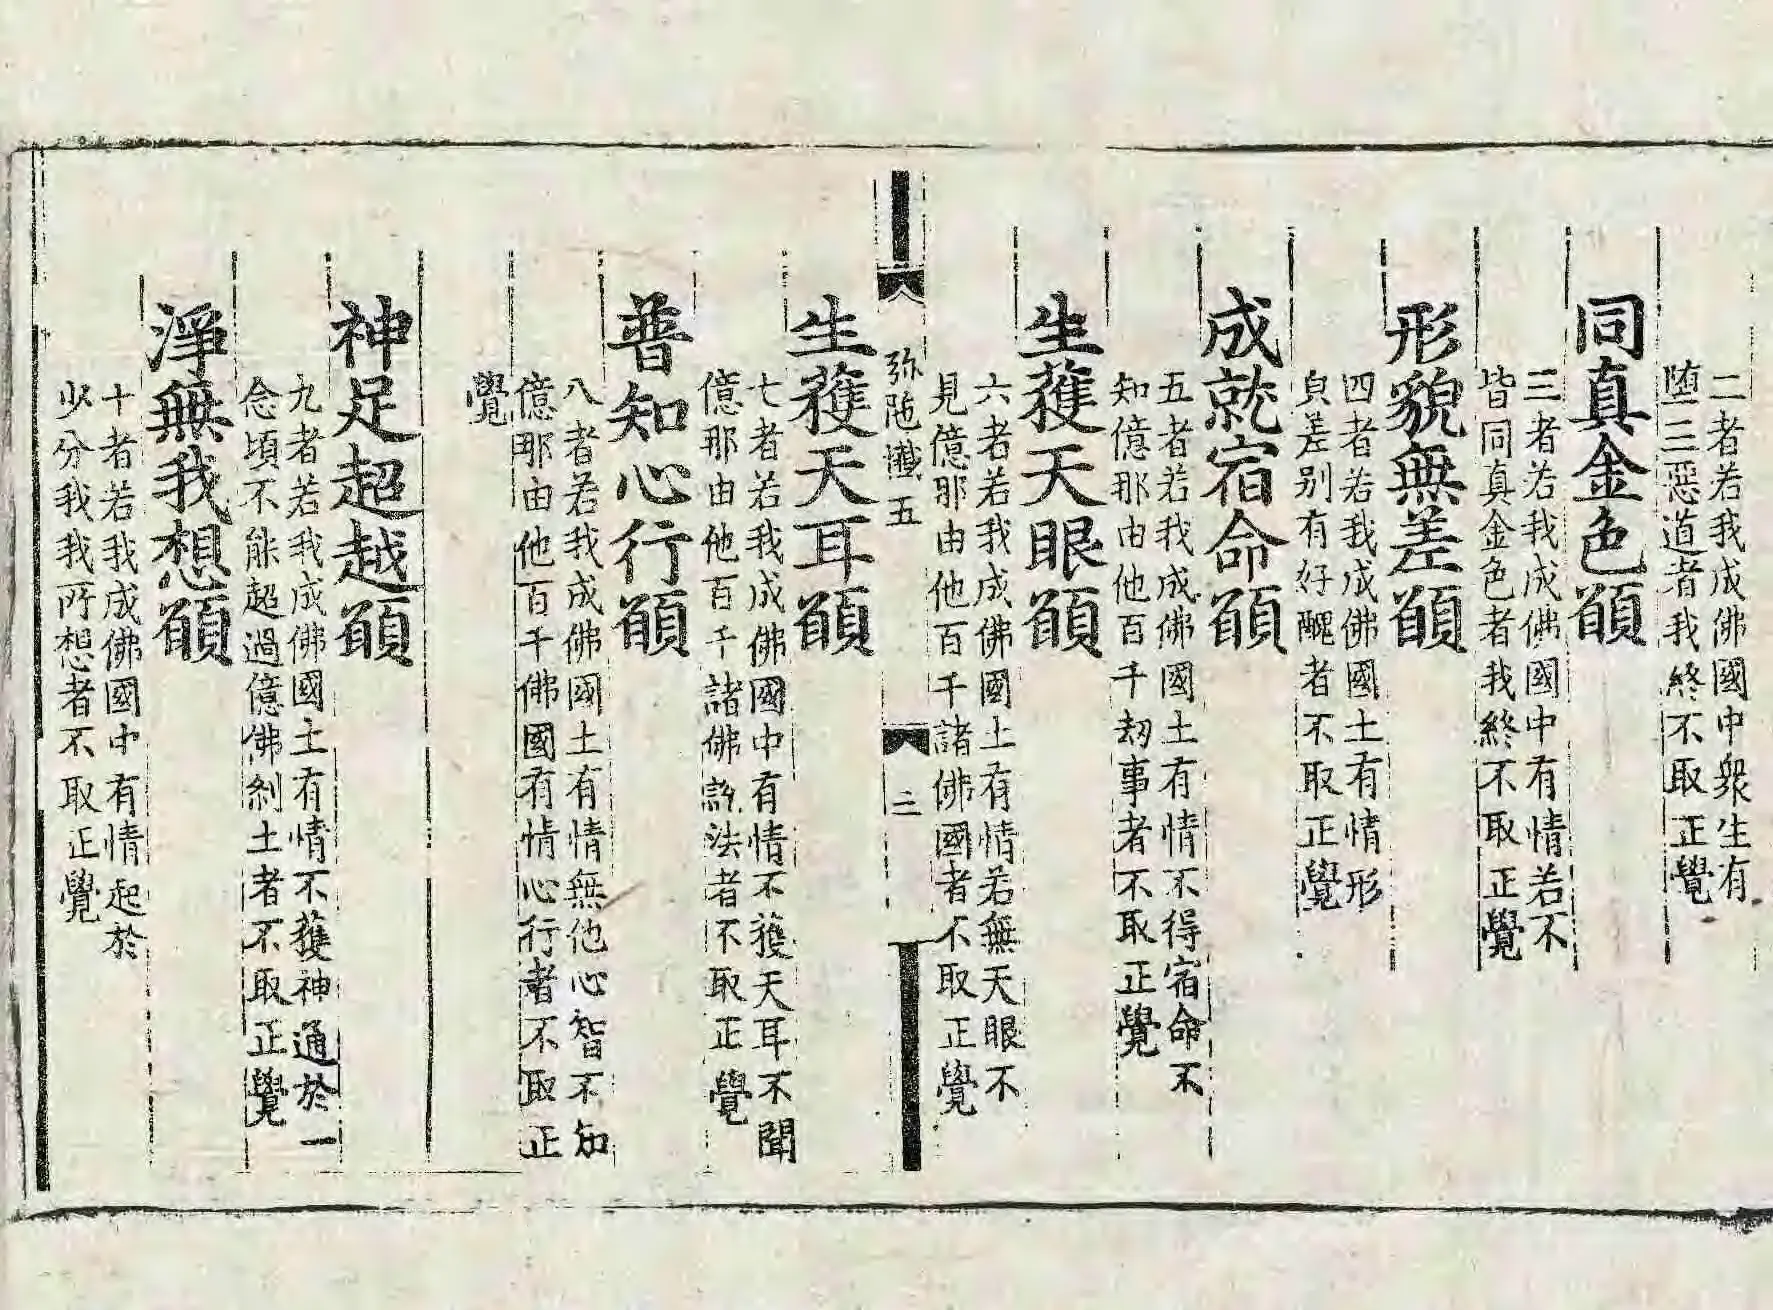 二者若我成佛國中衆生有
墮三惡道者我終不取正覺
同真金色願
三者若我成佛國中有情若不
皆同真金色者我終不取正覺
形貌無差願
四者若我成佛國土有情形
皃差别有好醜者不取正覺
成就宿命願
五者若我成佛國土有情不得宿命不
知億那由他百千劫事者不取正覺
生獲天眼願
六者若我成佛國土有情若無天眼不
見億那由他百千諸佛國者不取正覺
弥陁懺五
二
生獲天耳願
七者若我成佛國中有情不獲天耳不聞
億那由他百千諸佛說法者不取正覺
普知心行願
八者若我成佛國土有情無他心智不知
億那由他百千佛國有情心行者不取正
覺
神足超越願
九者若我成佛國土有情不獲神通於一
念頃不能超過億佛刹土者不取正覺
淨無我想願
十者若我成佛國中有情起於
少分我我所想者不取正覺